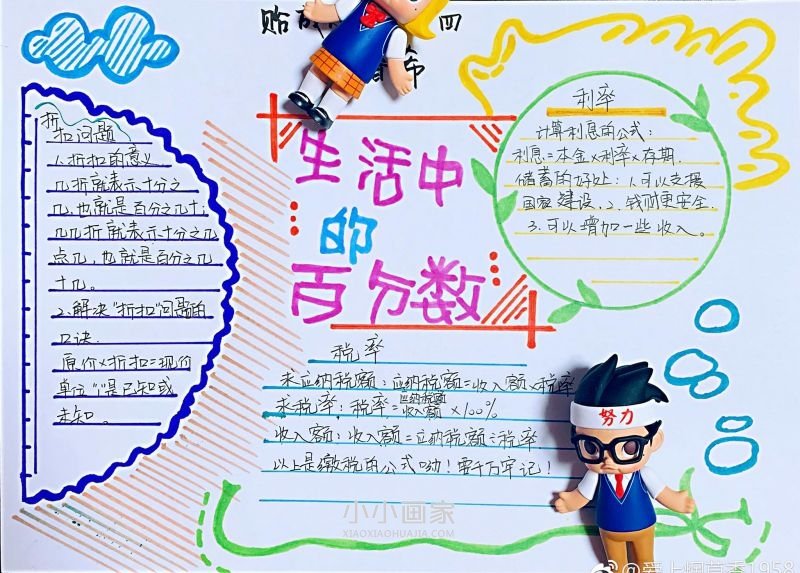 四
生活中
的
百分数
折
扣问题
1.折扣的意义
几折就表示十分之
几,也就是百分之几十;
几几折就表示十分之几
点几,也就是百分之几
十几。
2.解决"折扣"问题的
口诀.
原价×折扣=现价
单位"1"是已知或
未知。
利率
计算利息的公式:
利息=本金×利率×存期.
储蓄的好处:1.可以支援
国家建设.2.钱财更安全
3.可以增加一些收入。
税率
求应纳税额:应纳税额=收入额×税率
求税率:税率=应纳税额/收入额×100%
收入额:收入额=应纳税额÷税率
以上是缴税的公式呦!要千万牢记!
努力
小小画家
XIAOXIAOHUAJIA.COM